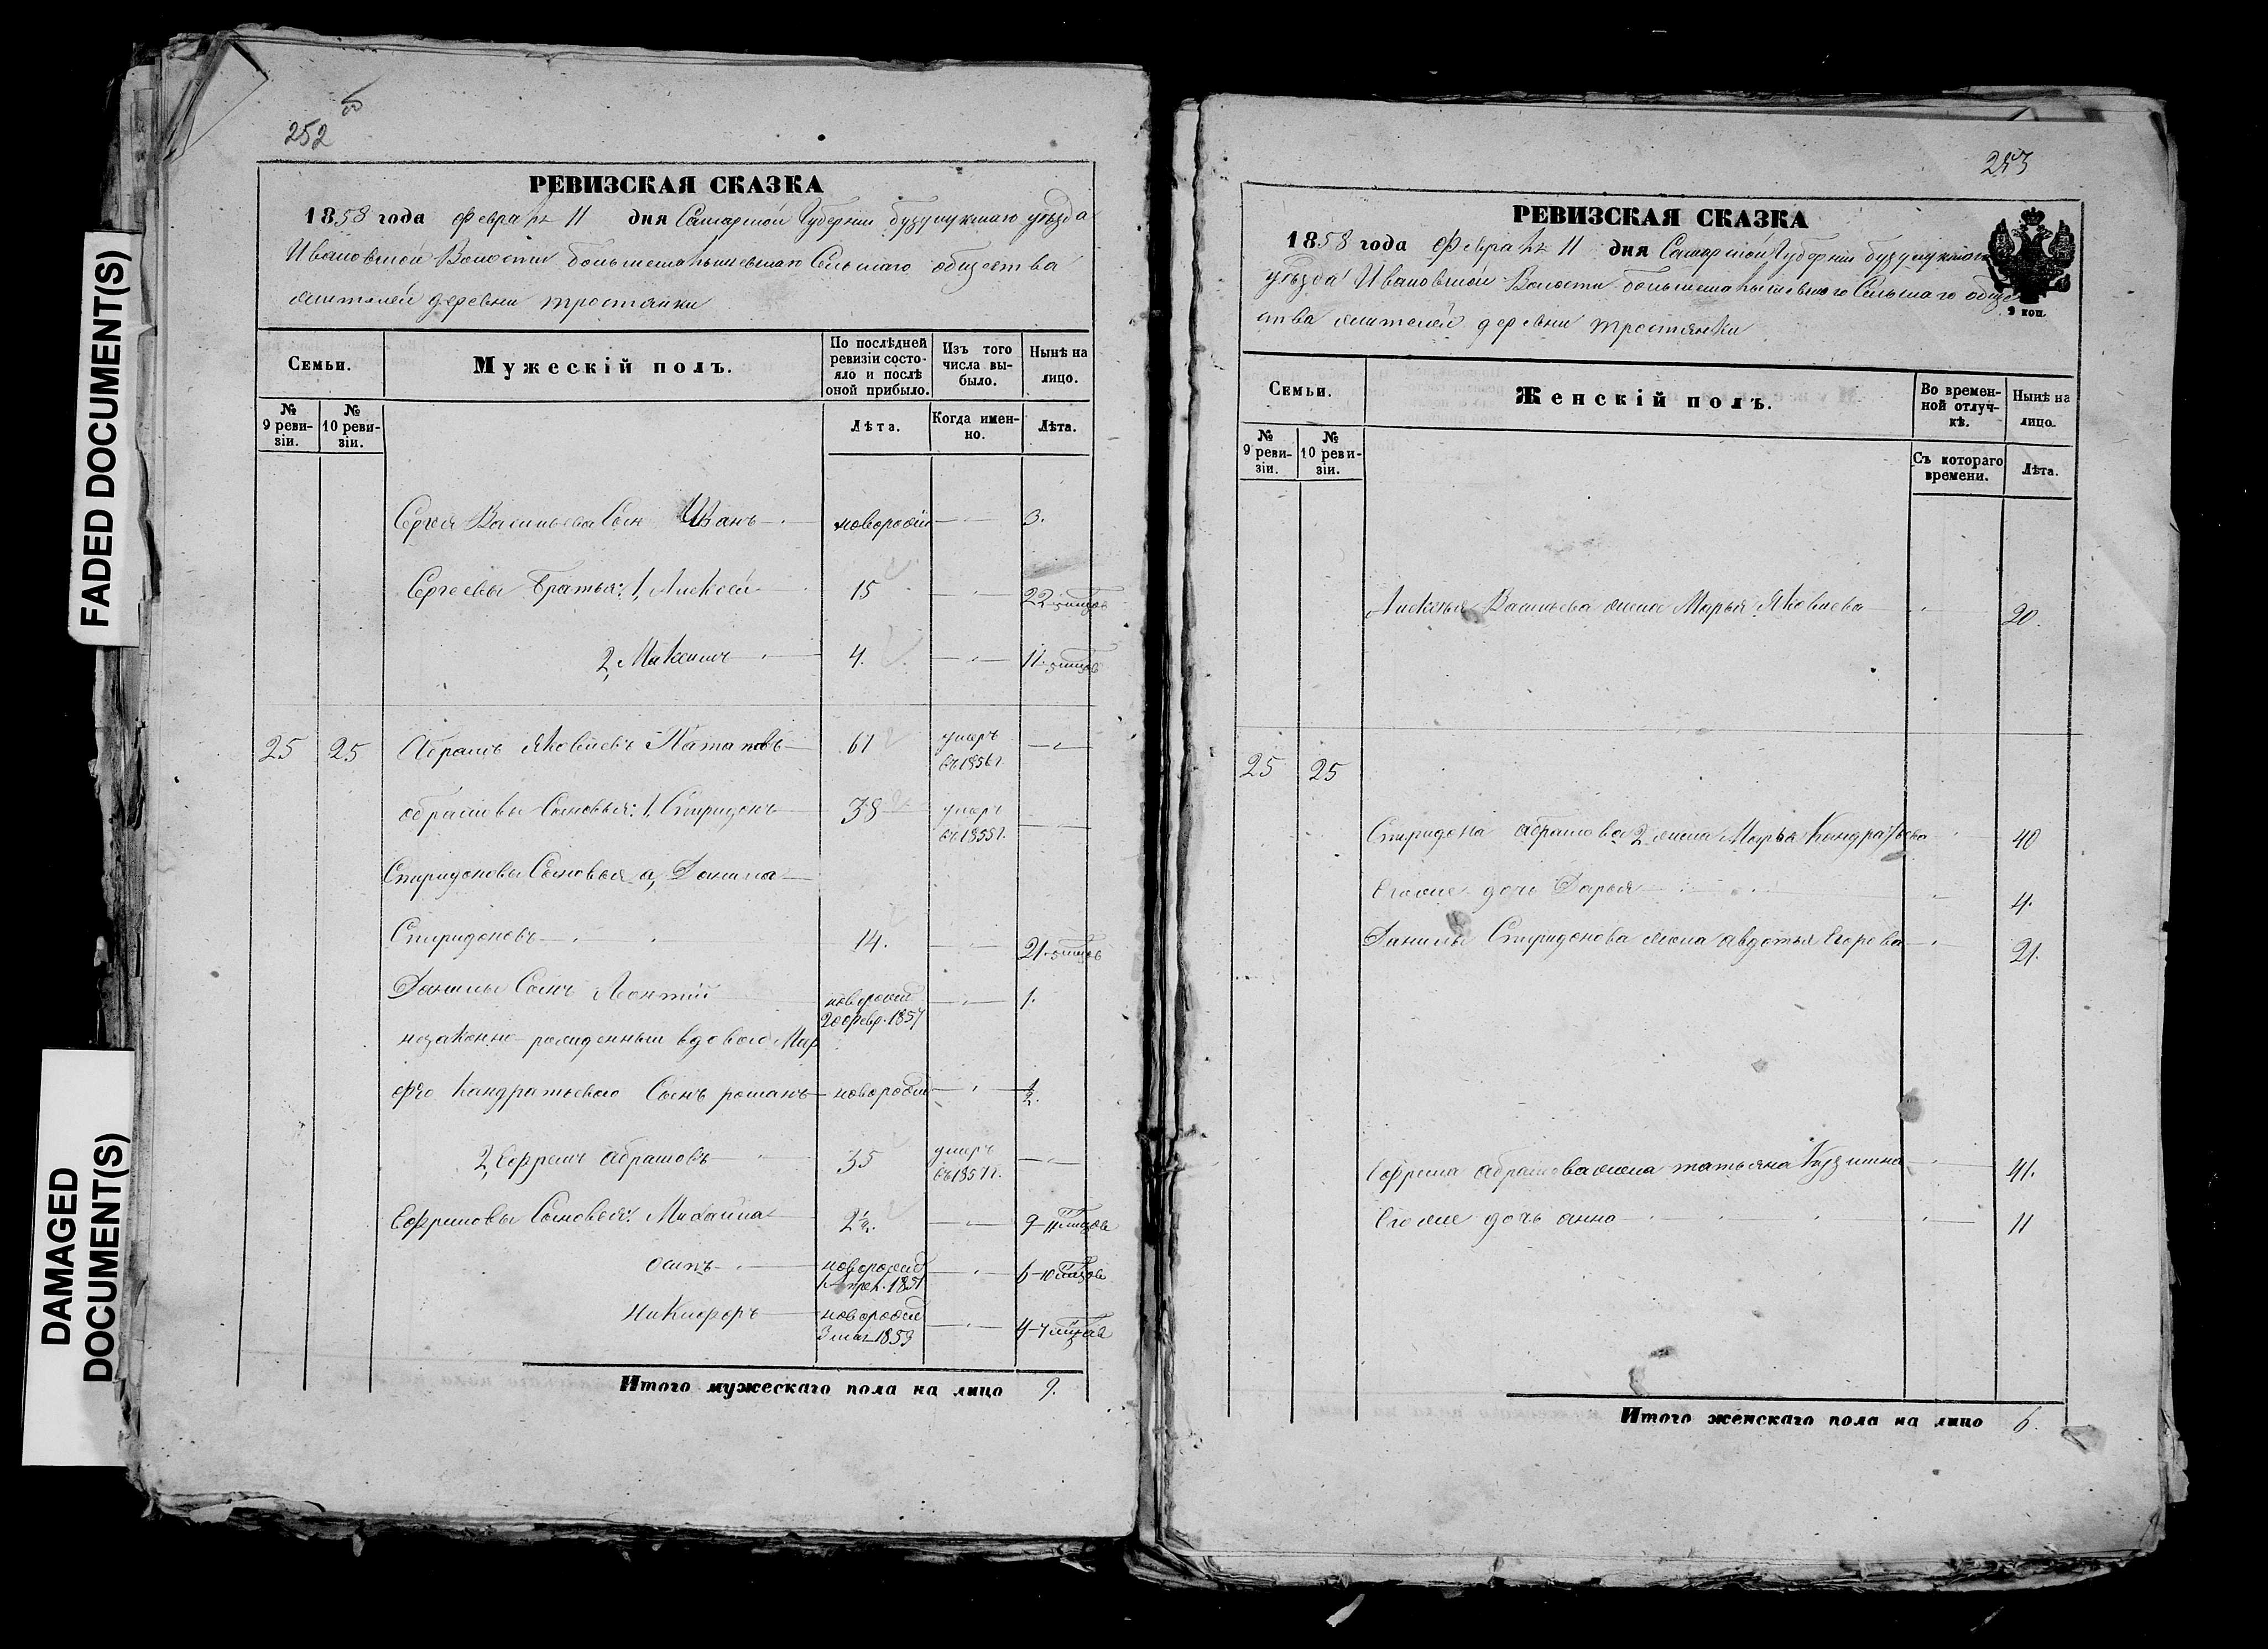 FADED DOCUMENT(S)
DAMAGED DOCUMENT(S)
252
РЕВИЗСКАЯ СКАЗКА
1858 года Февраля 11 дня Самарской Губернии бузулукскаго уезда
Ивановской Волости Сельскаго общества
жителей деревни тростянки
Семьи.
Мужескій полъ.
По послѣдней ревизіи состояло и послѣ оной прибыло.
Изъ того числа выбыло.
Нынѣ на лицо.
№ 9 ревизіи.
№ 10 ревизіи.
Лѣта.
Когда именно.
Лѣта.
Сергея Васильева Сын Иванъ новорожд 3.
Сергеевы братья: 1, Алексей 15 22
2, Максимъ 4. 11
25 25 Абрамъ Яковлевъ Патаповъ 61 умеръ въ 1856 г.
абрамовы Сыновья: 1, Спиридонъ 38 умеръ въ 1855 г.
Спиридоновы Сыновья а, Данила
Спиридоновъ 14. 21
Данилы Сынъ Леонтій новорожд 20 февр. 1857 1.
незаконно рожденный вдовою Мар
фою Кандратьевою Сынъ романъ новорожд 1/2.
2, Ефремъ абрамовъ 35 умеръ въ 1857 г.
Ефремовы Сыновья: Михайла 2 1/2. 9
осипъ новорожд 1851 6
Никифоръ новорожд 4
Итого мужескаго пола на лицо 9.
253
РЕВИЗСКАЯ СКАЗКА
1858 года Февраля 11 дня Самарской Губернии бузулукскаго
уѣзда Ивановской Волости Сельскаго обще
ства жителей деревни тростянки
2 коп.
Семьи.
Женскій полъ.
Во временной отлучкѣ.
Нынѣ на лицо.
№ 9 ревизіи.
№ 10 ревизіи.
Съ котораго времени.
Лѣта.
Алексея Васильева жена Марья Яковлева 20.
25 25
Спиридона абрамова 2 жена Марфа Кандратьева 40
Егоже дочь Дарья 4.
Данилы Спиридонова жена авдотья Егорова 21.
Ефрема абрамова жена татьяна Кузмина 41.
Егоже дочь анна 11
Итого женскаго пола на лицо 6.